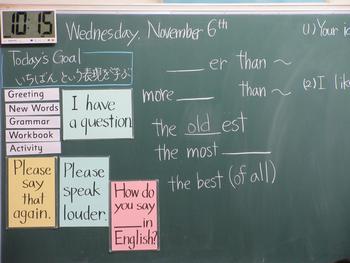 10:15
Wednesday, November 6th
(1) Your
Today's Goal
いちばん という表現を学ぶ
___er than ～
more ___ than ～
(2) I like
the old est
the most ___
the best (of all)
Greeting
New Words
Grammar
Workbook
Activity
I have
a question
Please
say
that
again.
Please
speak
louder.
How do
you say
___in
English?